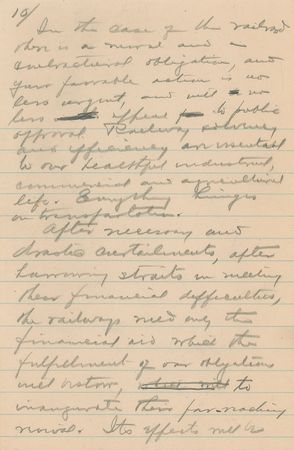 10/
In the case of the railroad
there is a moral and a
contractural obligation, and
your favorable action is no
less urgent, and will no
less appeal to public
approval Railway solvency
and efficiency are essential
to our healthful industrial,
commercial and agricultural
life. Everything hinges
on transportation.
After necessary and
drastic curtailments, after
harrowing straits in meeting
their financial difficulties,
the railways need only the
financial aid which the
fulfillment of our obligations
will bestow, to
inaugurate their far-reaching
revival. Its effects will be